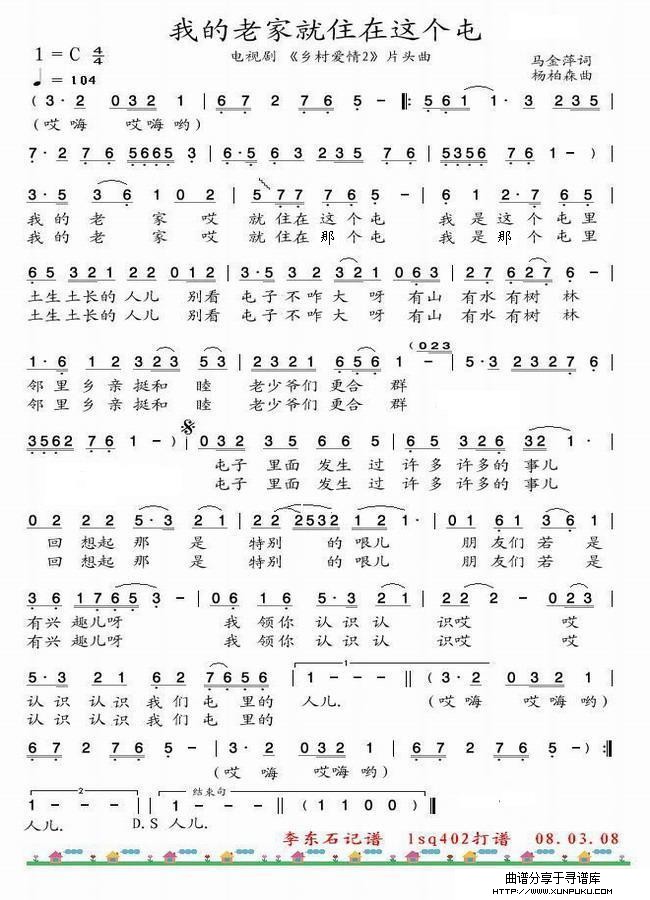 我的老家就住在这个屯
1=C 4/4
电视剧 《乡村爱情2》片头曲
马金萍词
♩= 104
杨柏森曲
(3·2 032 1 | 6 72 76 5 - |: 561 1 · 3 235 |
(哎嗨 哎嗨哟)
7·2 76 5665 3 | 6·5 63 235 76 | 5356 76 1 - ) |
3·5 36 1 02 | 577 765 - | 61 2·7 65 |
我的 老 家 哎 就住在这个屯 我是这个屯里
我的 老 家 哎 就住在那个屯 我是那个屯里
65 321 22 012 | 3·5 32 321 063 | 27 627 6 - |
土生土长的人儿 别看 屯子不咋大 呀 有山 有水有树 林
土生土长的人儿 别看 屯子不咋大 呀 有山 有水有树 林
(023
1·6 12 323 53 | 2321 656 1 - | 5·3 2327 6 |
邻里乡亲挺和 睦 老少爷们更合 群
邻里乡亲挺和 睦 老少爷们更合 群
3562 76 1 - ) | 032 35 66 | 65 326 32 1 · |
屯子 里面 发生 过 许多 许多的 事儿
屯子 里面 发生 过 许多 许多的 事儿
02 22 5·3 21 | 22 2532 12 1· | 01 61 36 1 |
回 想起 那 是 特别 的 哏儿 朋 友们 若 是
回 想起 那 是 特别 的 哏儿 朋 友们 若 是
36 1765 3 - | 06 16 53 22 | 2 - - 023 |
有兴 趣儿呀 我 领你 认识 认 识哎 哎
有兴 趣儿呀 我 领你 认识 认 识哎 哎
5·3 21 62 7656 | 1 1 - - - || (3·2 032 1 |
认识 认识 我们 屯 里的 人儿. (哎嗨 哎嗨哟)
认识 认识 我们 屯 里的
6 72 76 5 - | 3· 2 032 1 | 6 72 76 5 - ) :||
(哎 嗨 哎嗨 哟)
2 结束句
1 - - - | 1 - - - | 1 - - - | (1 1 0 0) ||
人儿. D.S 人儿.
李东石记谱 lsq402打谱 08.03.08
曲谱分享于寻谱库
HTTP://WWW.XUNPUKU.COM